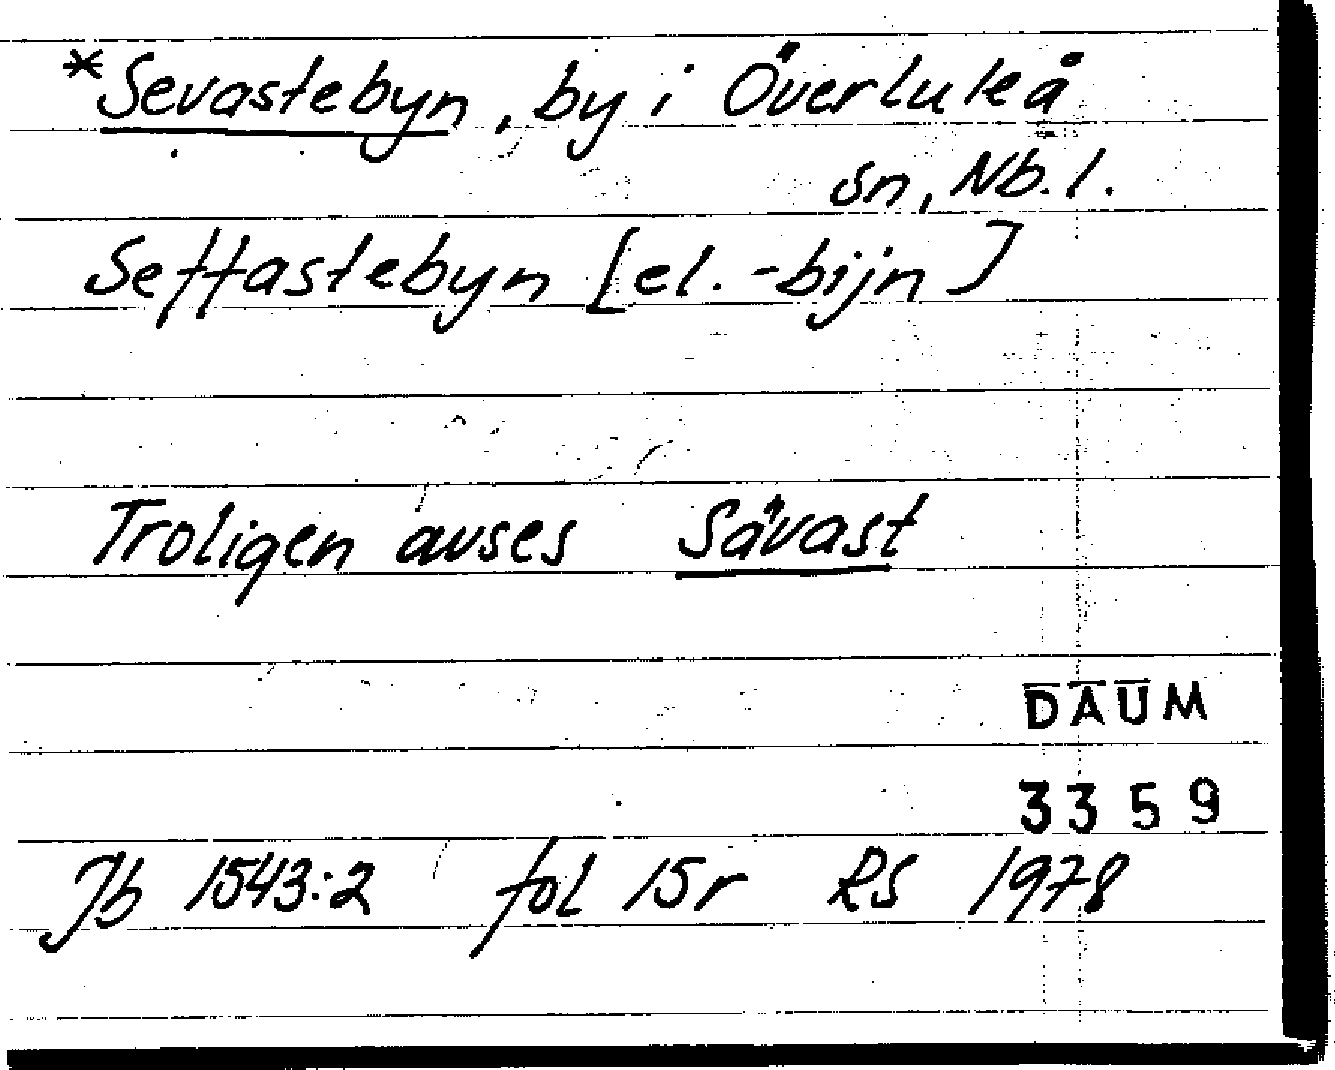 *Sevastebyn, by i Överluleå
sn, Nb. l.
Seffastebyn [el. -bijn]
Troligen avses Sävast
DAUM
3359
Jb 1543:2 fol 15r RS 1978